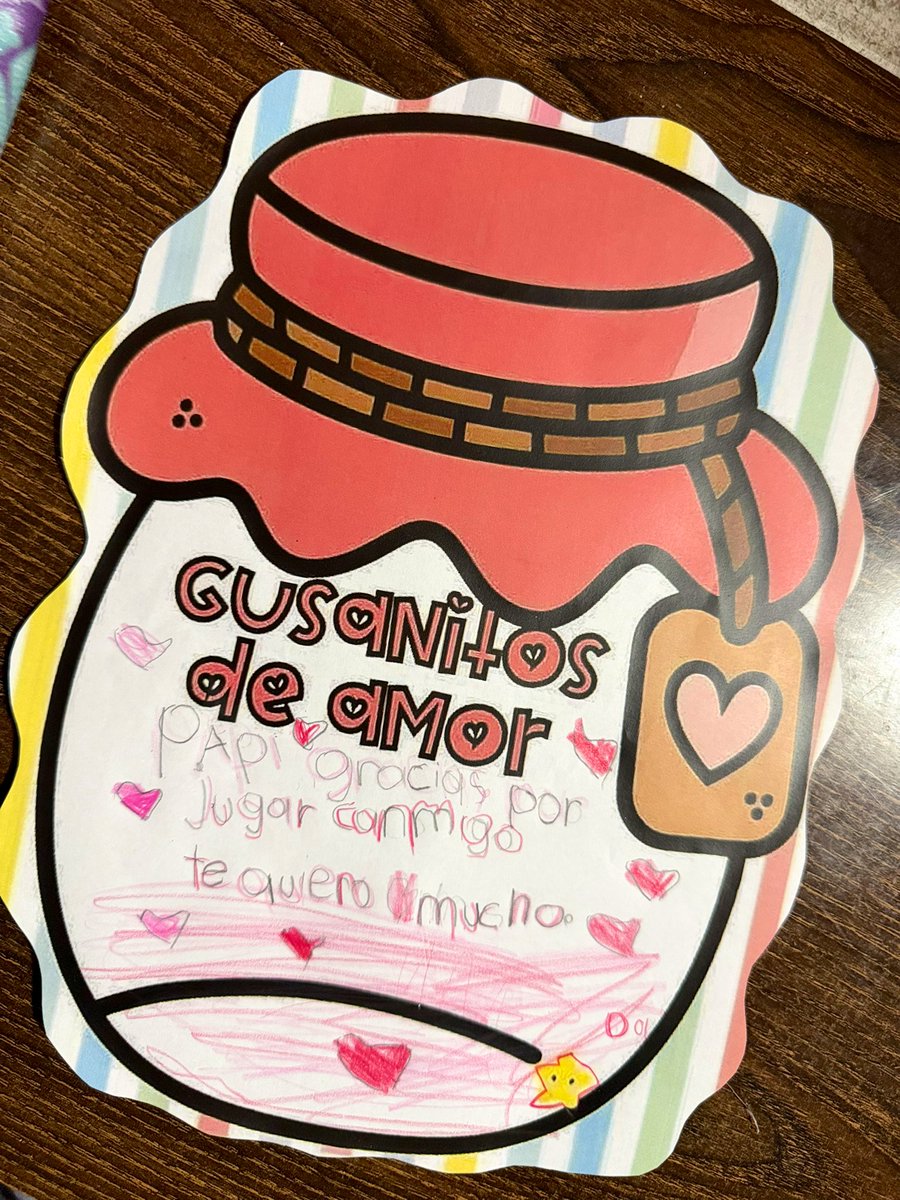 Gusanitos
de amor
Papi gracias por
Jugar conmigo
te quiero mucho.